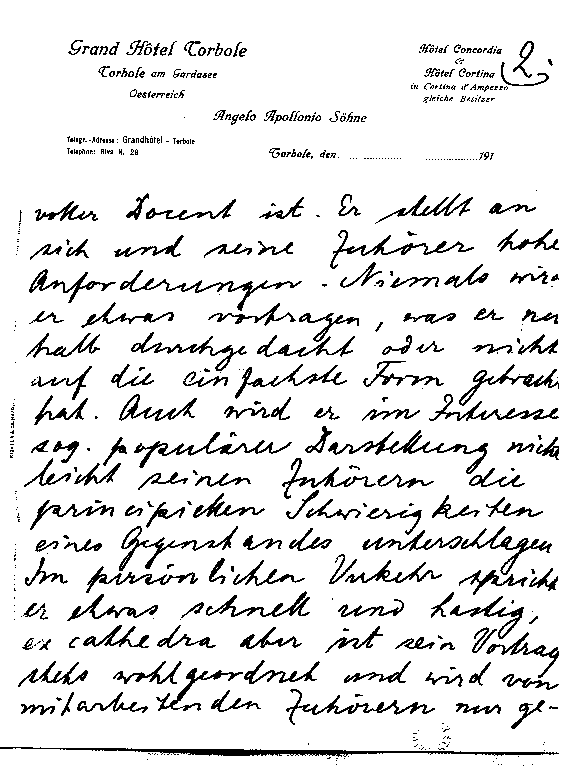 Grand Hôtel Torbole
Torbole am Gardasee
Oesterreich
Hôtel Concordia
&
Hôtel Cortina
in Cortina d'Ampezzo
gleiche Besitzer
2.
Angelo Apollonio Söhne
Telegr.-Adresse: Grandhôtel - Torbole
Telephon: Riva N. 28
Torbole, den 191
voller Docent ist. Er stellt an
sich und seine Zuhörer hohe
Anforderungen. Niemals wird
er etwas vortragen, was er nur
halb durchgedacht oder nicht
auf die einfachste Form gebracht
hat. Auch wird er im Interesse
sog. populärer Darstellung nicht
leicht seinen Zuhörern die
principiellen Schwierigkeiten
eines Gegenstandes unterschlagen
Im persönlichen Verkehr spricht
er etwas schnell und hastig,
ex cathedra aber ist sein Vortrag
stets wohlgeordnet und wird von
mitarbeitenden Zuhörern nur ge-